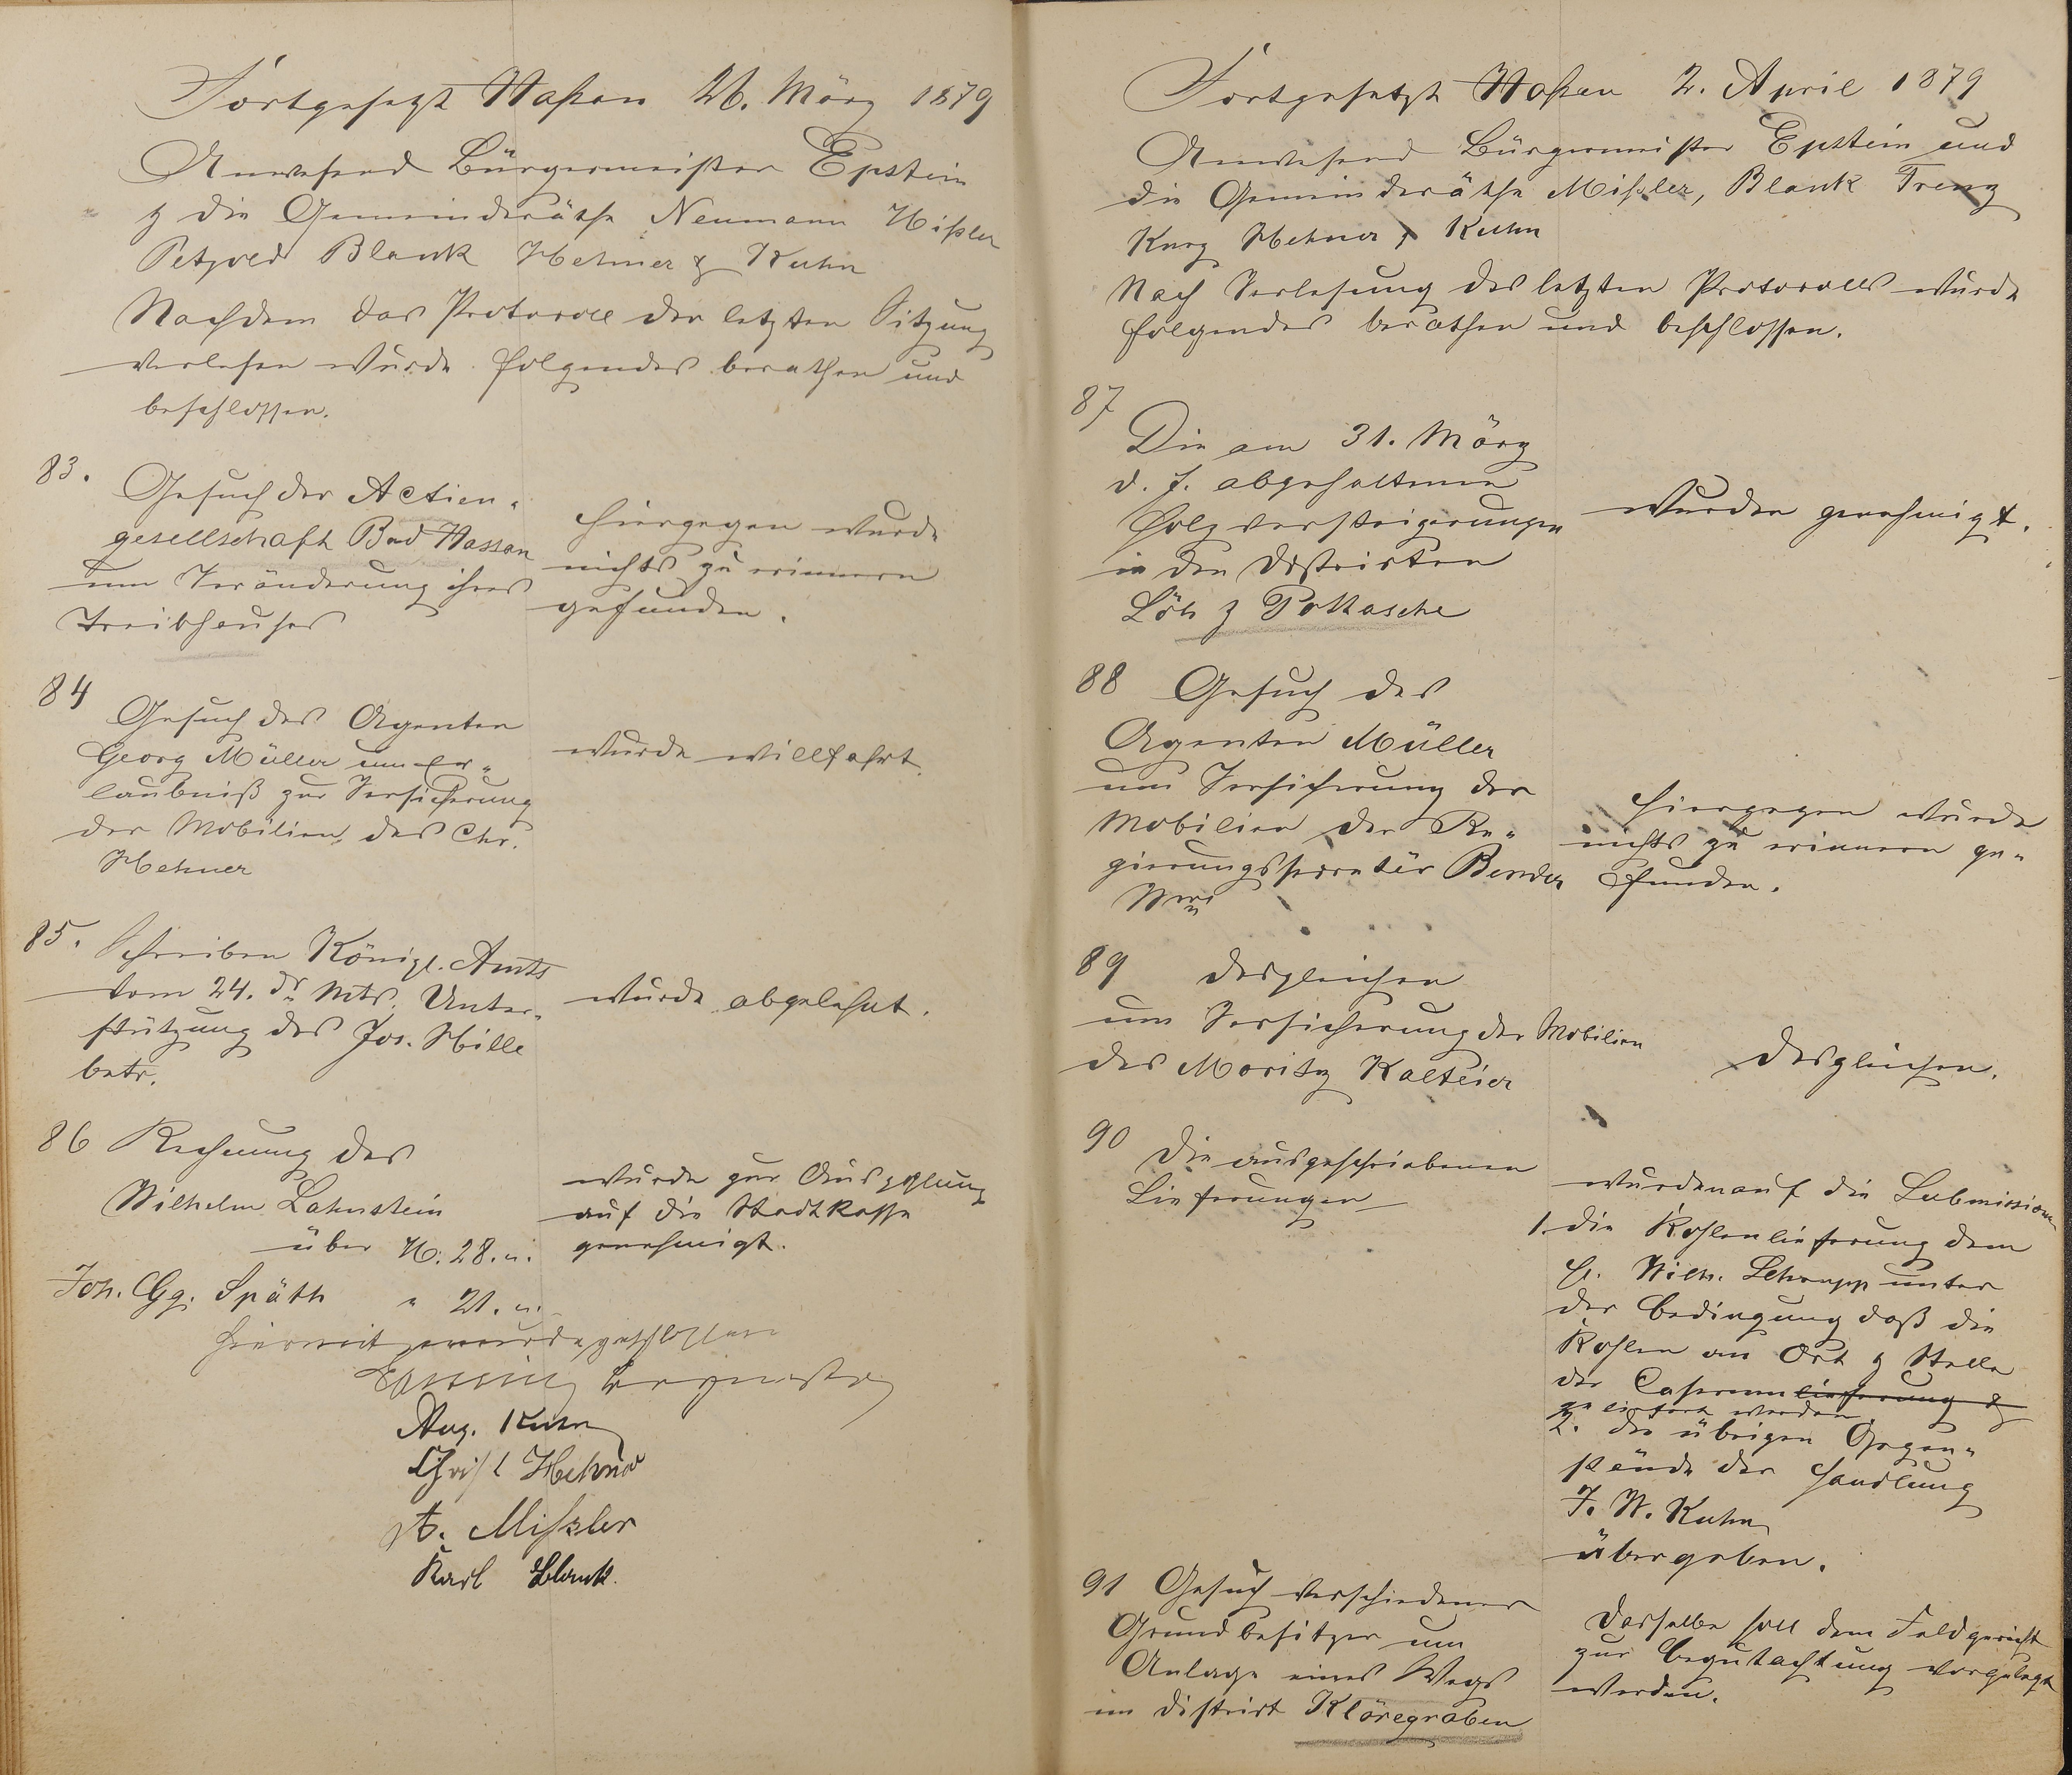 Fortgesetzt Naßau 26. März 1879
Anwesend Bürgermeister Epstein
& die Gemeinderäthe Neumann Mißler
Petzold Blank Hehner & Kuhn
Nachdem das Protocoll der letzten Sitzung
verlesen wurde folgendes berathen und
beschlossen.
83.
Gesuch der Actien-
gesellschaft Bad Nassau
um Veränderung ihres
Treibhauses
hiergegen wurde
nichts zu erinnern
gefunden.
84
Gesuch des Agenten
Georg Müller um Er-
laubniß zur Versicherung
der Mobilien des Chr.
Hehner
wurde willfahrt.
85.
Schreiben Königl. Amts
vom 24. ds. Mts. Unter-
stützung des Jos. Hille
betr.
wurde abgelehnt.
86 Rechnung des
Wilhelm Lahnstein
über M. 28. "
Joh. Gg. Späth " 21. "
wurde zur Auszahlung
auf die Stadtkasse
genehmigt.
hiermit wurde geschlossen
Epstein Bürgermstr
Aug. Kuhn
Christ Hehner
A. Mißler
Karl Blank.
Fortgesetzt Naßau 2. April 1879
Anwesend Bürgermeister Epstein und
die Gemeinderäthe Mißler, Blank Trenz
Kurz Hehner & Kuhn
Nach Verlesung des letzten Protocolls wurde
folgendes berathen und beschlossen.
87
Die am 31. März
d. J. abgehaltenen
Holzversteigerungen
in den Distrikten
Löh & Pottasche
wurden genehmigt.
88 Gesuch des
Agenten Müller
um Versicherung der
Mobilien der Re-
gierungssecretär Bender
Wwe
hiergegen wurde
nichts zu erinnern ge-
funden.
89 desgleichen
um Versicherung der Mobilien
des Moritz Kalteier
desgleichen.
90
Die ausgeschriebenen
Lieferungen
wurden auf die Submission
1. die Kohlenlieferung dem
H. Wilh. Schrupp unter
der Bedingung daß die
Kohlen an Ort & Stelle
der Casernen lieferung &
geliefert werden
2. die übrigen Gegen-
stände der Handlung
J. W. Kuhn
übergeben.
91 Gesuch verschiedener
Grundbesitzer um
Anlage eines Wegs
im District Klöregraben
Dasselbe soll dem Feldgericht
zur Begutachtung vorgelegt
werden.